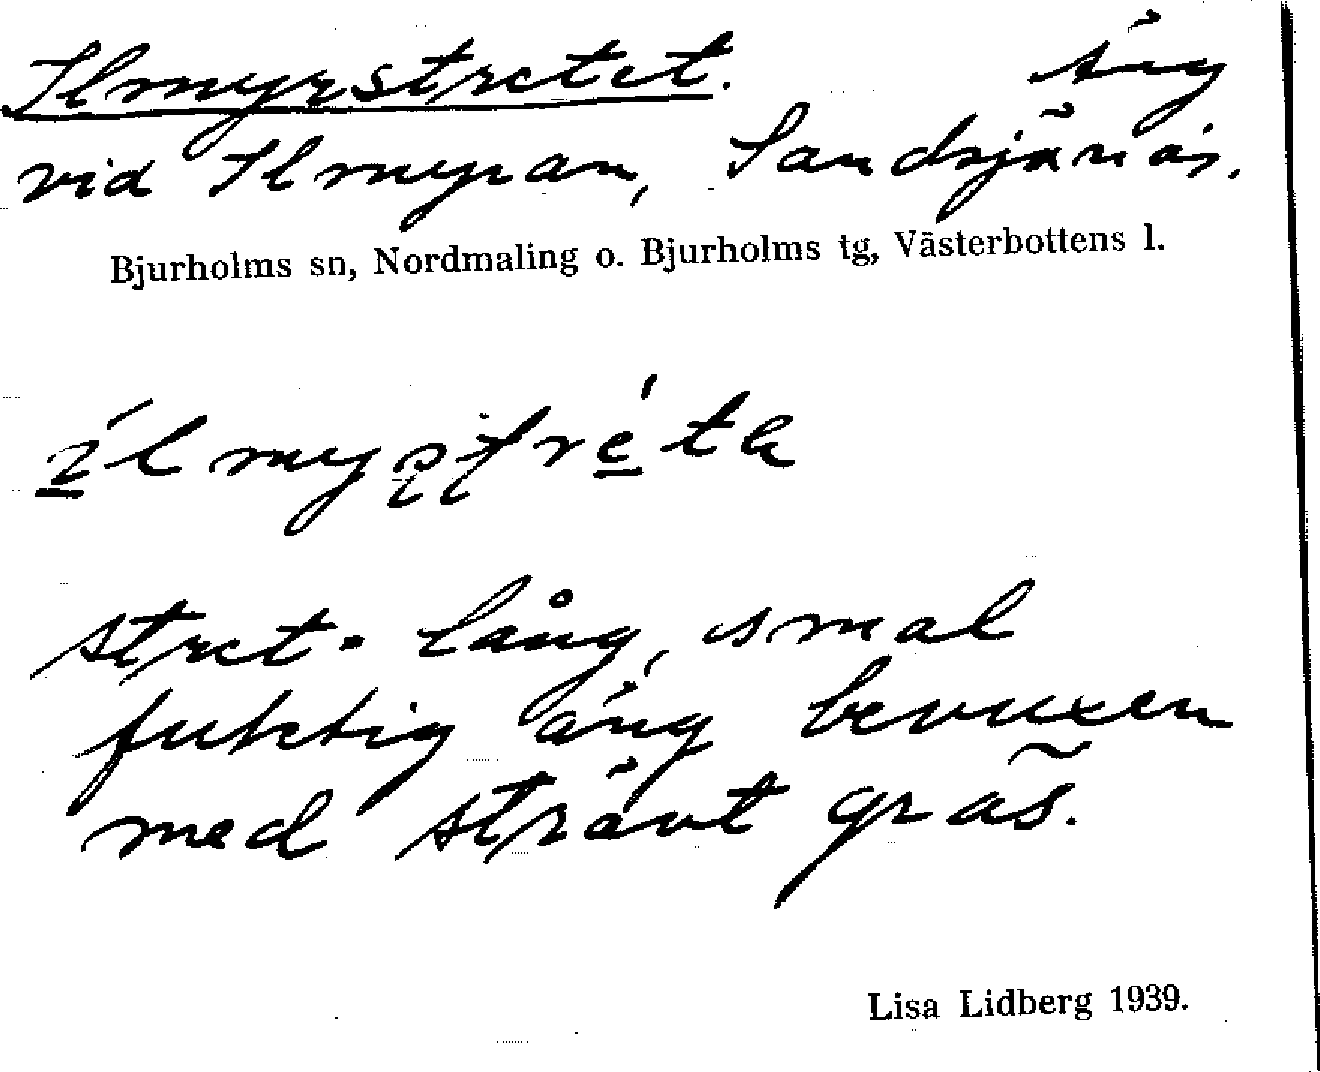 Ilmyrstretet. äng
vid Ilmyran, Sandsjönäs.
Bjurholms sn, Nordmaling o. Bjurholms tg, Västerbottens l.
stret = lång, smal
fuktig äng bevuxen
med strävt gräs.
Lisa Lidberg 1939.